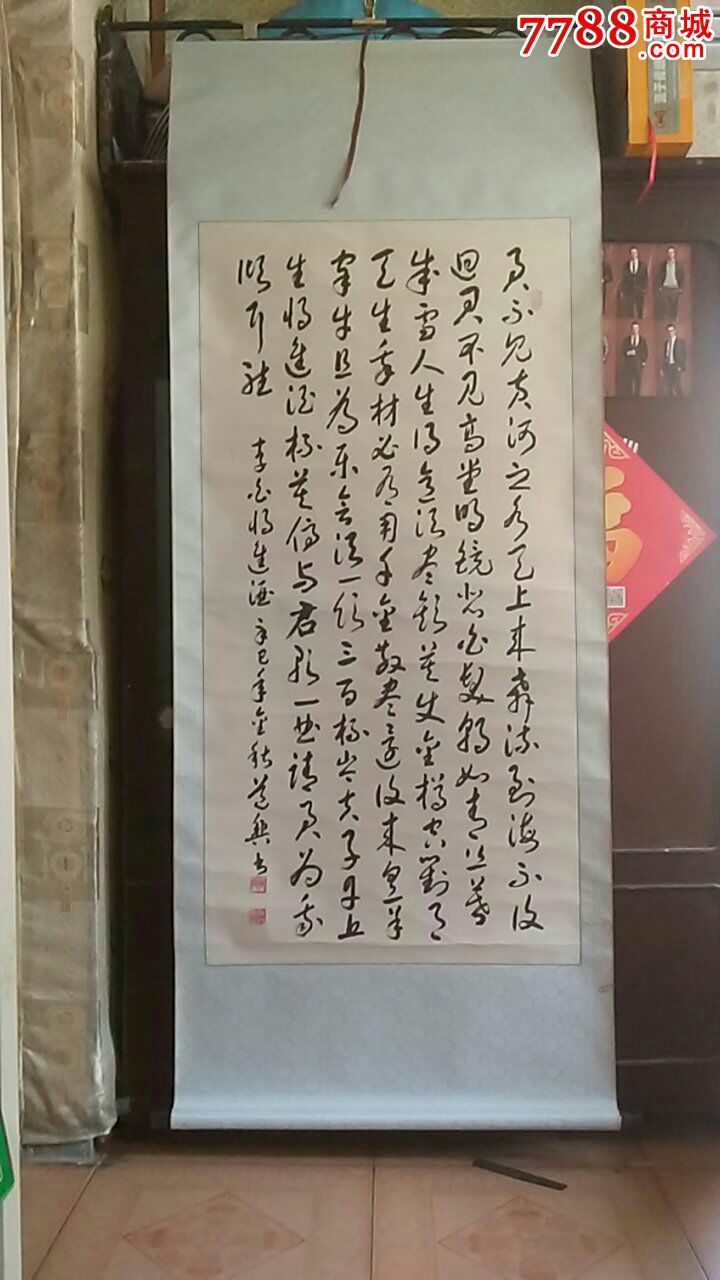 7788商城
.com
君不見黄河之水天上來奔流到海不復
迴君不見高堂明鏡悲白髮朝如青丝暮
成雪人生得意須盡歡莫使金樽空對月
天生我材必有用千金散盡還復來烹羊
宰牛且為樂會須一飲三百杯岑夫子丹丘
生將進酒杯莫停与君歌一曲請君為我
傾耳聽 李白將進酒 辛巳年金秋 興書
福